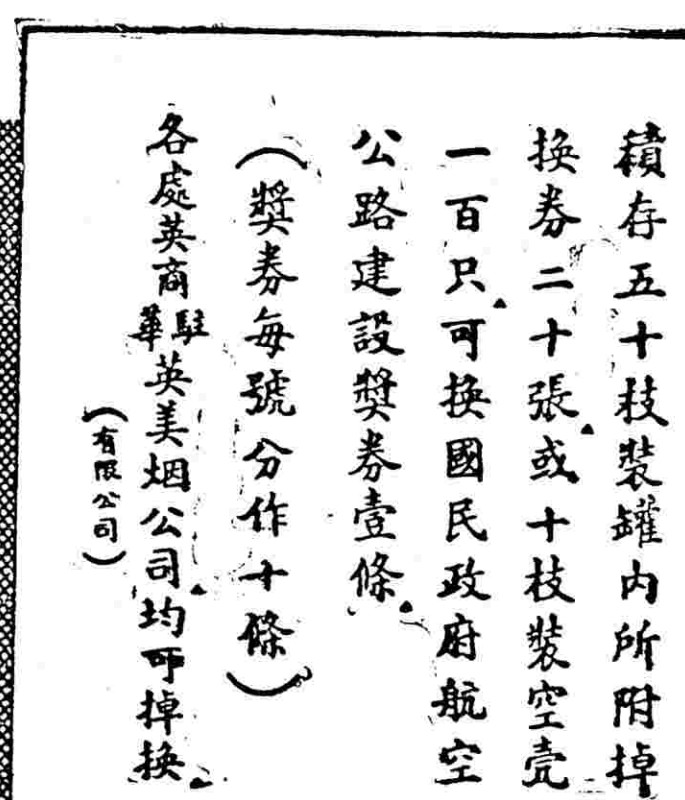 積存五十枝裝罐內所附掉
換券二十張或十枝裝空壳
一百只可換國民政府航空
公路建設獎券壹條
(獎券每號分作十條)
各處英商駐華英美烟公司均可掉換
(有限公司)